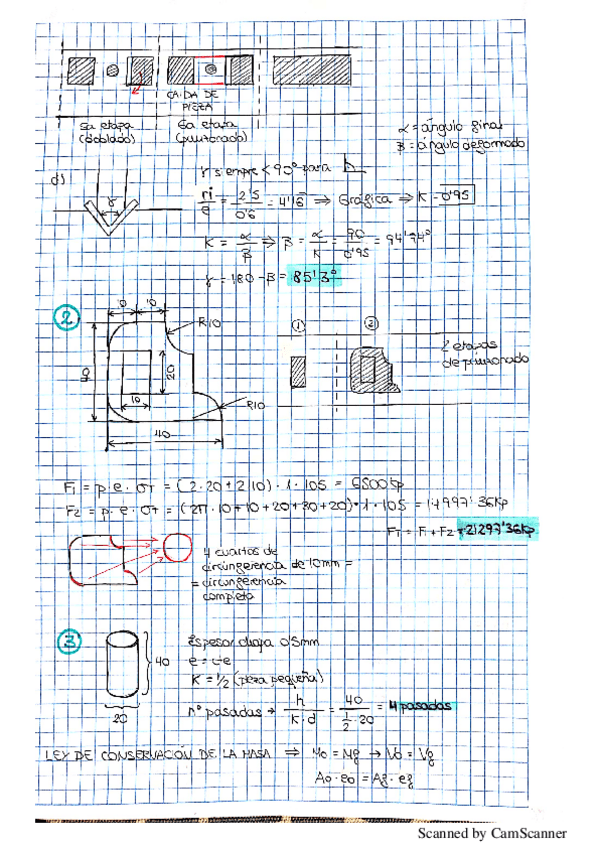 CAIDA DE
PIEZA
5a etapa
(doblado)
6a etapa
(punzonado)
α = ángulo final
β = ángulo deformado
d)
γ
γ siempre < 90° para
ri/e = 2'5/0'6 = 4'16 ⇒ Gráfica ⇒ K = 0'95
K = α/β ⇒ β = α/K = 90/0'95 = 94'74°
γ = 180 - β = 85'3°
2
10
R10
40
20
10
R10
40
1
2
2 etapas
de punzonado
F1 = p·e·σT = (2·20+2·10)·1·105 = 6300kp
F2 = p·e·σT = (2π·10+10+20+30+20)·1·105 = 14997'36kp
FT = F1+F2 = 21297'36kp
4 cuartos de
circunferencia de 10mm =
= circunferencia
completa
3
40
20
Espesor chapa 0'5mm
K = 1/2 (pieza pequeña)
nº pasadas → h/(K·d) = 40/(1/2·20) = 4 pasadas
LEY DE CONSERVACION DE LA MASA ⇒ Mo = Mf → Vo = Vf
Ao·eo = Af·ef
Scanned by CamScanner